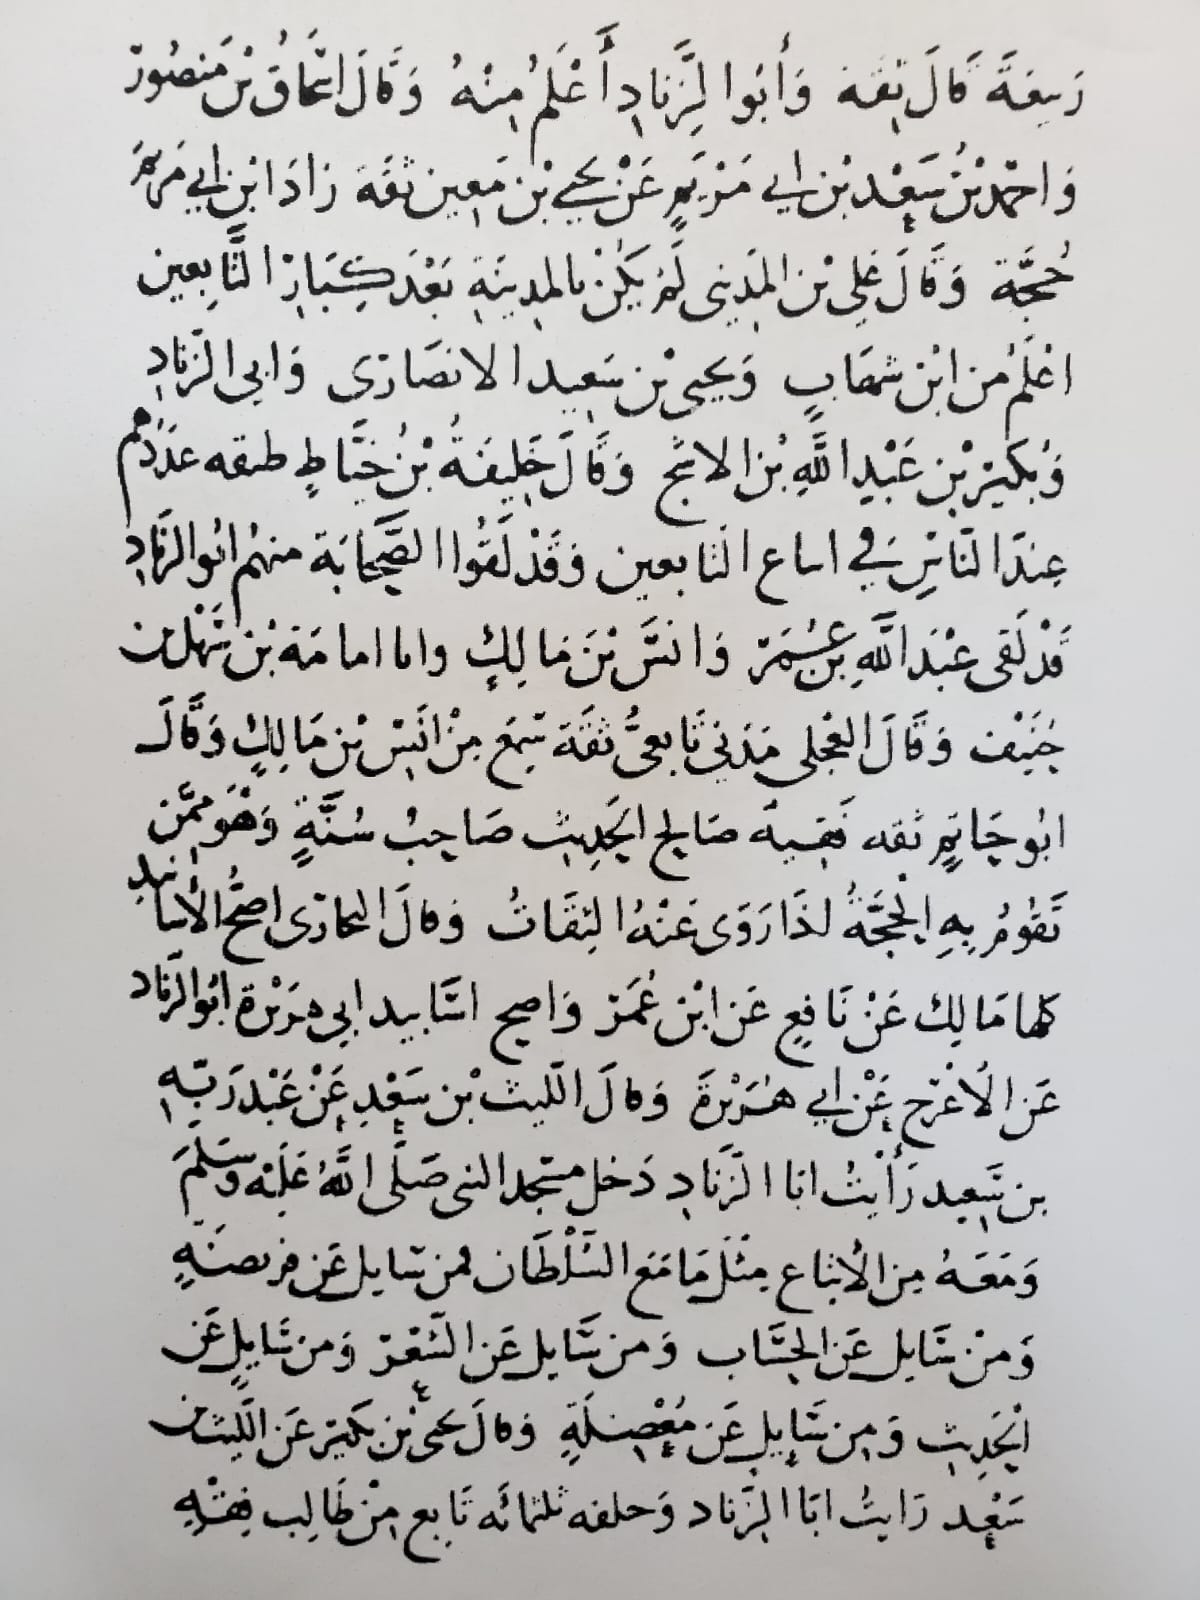 رَبِيعَةَ قَالَ ثِقَة وَأَبُوا لزِّنَادِ أَعْلَمُ مِنْهُ وَقَالَ اسْحَاقُ بْنُ مَنصُورٍ
وَاحْمَدُ بْنُ سَعْدِ بْنِ ابي مَرْيَمٍ عَنْ يَحْيَى بْنِ مَعِين ثقَة زادَ ابْنِ ابي مَريم
حُجَّة وَقَالَ عَلي بْن المَدِيني لَمْ يَكُنْ بالمدِينَةِ بَعْدَ كِبَارِ التَّابِعِين
اعْلَمُ مِن ابْن شهَابٍ وَيحيى بْن سَعِيدِ الانصَارى وَابى الزِّنَادِ
وَبُكَيْرِ بْنِ عَبْدِ اللَّهِ بْن الاشَج وَقَالَ خَلِيفَةُ بْنُ خَيَّاطٍ طبقه عَدَدُهم
عِندَ النَّاسِ فِي اتباع التابعين وَقَدْ لَقُوا الصَّحَابَة منهُم ابُوا لزنَادِ
قَدْ لَقى عبْدَ اللَّهِ بنَ عُمَرَ وَانَسَ بْنَ مَالِكٍ وابا امامَة بْن سَهْل بن
حُنَيْف وَقَالَ العجلي مَدَني تَابعيُّ ثقَة سَمِعَ مِنْ انَسِ بْنِ مَالِكٍ وَقَالَ
ابُو حَاتِمٍ ثقه فَقِيهٌ صَالح الحَدِيث صَاحِبُ سُنَّةٍ وَهُوَ مِمَّنْ
تَقُومُ بِهِ الحُجَّةُ اذَا رَوَى عَنْهُ الثِقَاتُ وَقالَ البخارى اصَحُّ الأسَانيد
كلها مَالِك عَنْ نَافِعٍ عَن ابْن عُمَرَ وَاصح اسَانيد ابى هرَيْرة ابُوا لزناد
عَنِ الأعْرَجِ عَنْ ابي هُرَيْرَةَ وَقالَ اللَّيث بْن سَعْدٍ عَنْ عَبْد رَبِّهِ
بن سَعِيد رَأَيْتُ ابَا الزِّنَادِ دَخلَ مَسْجد النبى صَلَّى اللَّهُ عَلَيْه وَسَلَّمَ
وَمَعَهُ مِنَ الأتبَاع مِثْلَ مَا مَعَ السُّلْطَان فمن سَايل عَن فريضَةٍ
وَمِنْ سَايل عَنِ الحِسَاب وَمن سَايل عَن الشِّعْرِ وَمن سَايلٍ عَن
الحَدِيث وَمِن سَايِلٍ عَن مُعْضِلَةٍ وَقالَ يَحيى بْن بُكَيْرٍ عَن اللَّيث بن
سَعْدٍ رَايتُ ابَا الزِّناد وَخلفه ثلثمائَه تَابِع مِنْ طَالِب فِقْهٍ